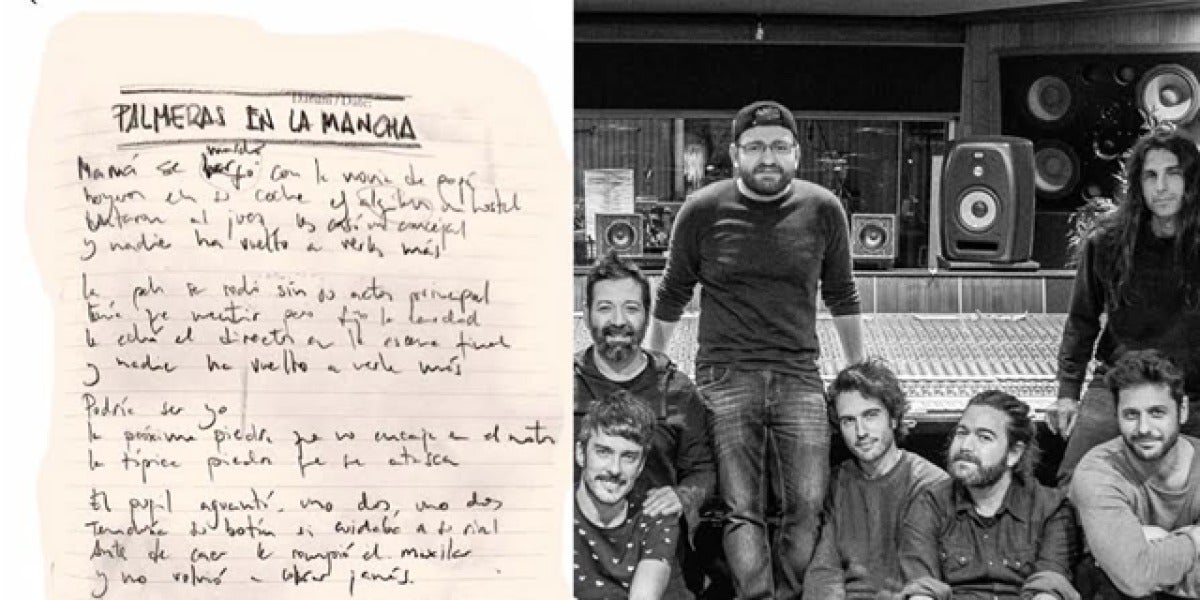 Datum / Date:
PALMERAS EN LA MANCHA
marchó
Mamá se con la novia de papá
en su coche y un hostel
al juez, las casó un concejal
y nadie ha vuelto a verlas más
La peli se rodó sin su actor principal
Tenía que mentir pero la verdad
le echó el director en la escena final
y nadie ha vuelto a verle más
Podría ser yo
la próxima piedra que no encaje en el motor
la típica piedra que se atasca
El pugil aguantó, uno dos, uno dos
tendría su botín si cuidaba a su rival
antes de caer le rompió el maxilar
y no volvió a cobrar jamás.